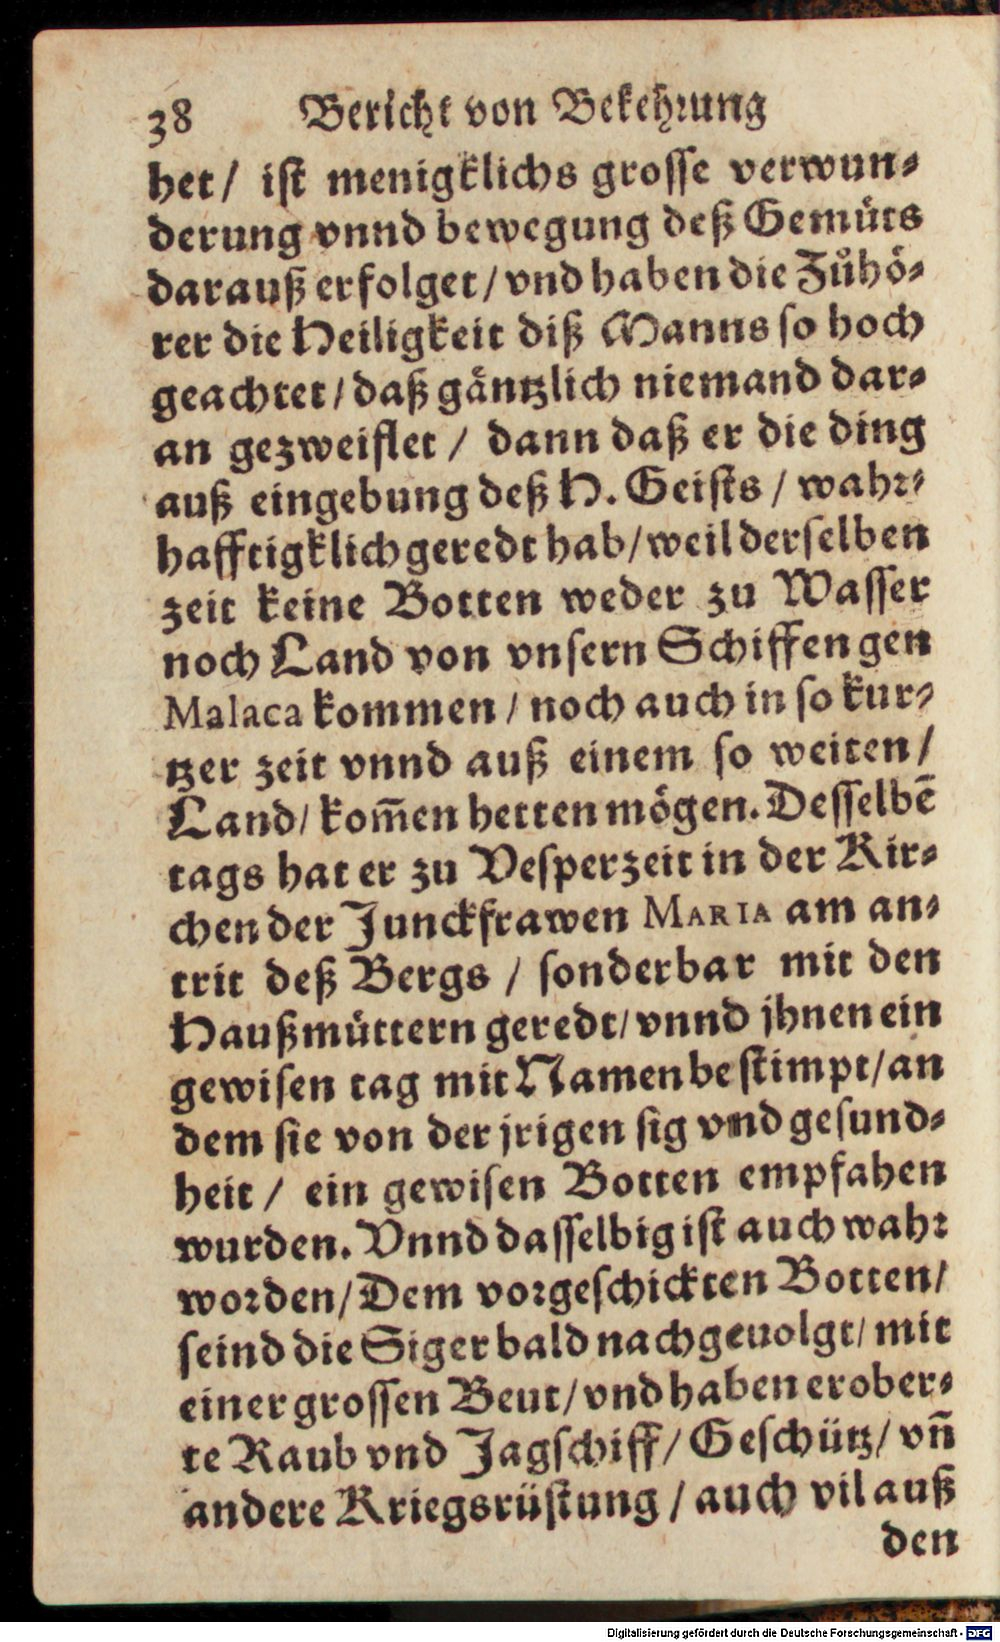 38 Bericht von Bekehrung
het/ ist menigklichs grosse verwun-
derung vnnd bewegung deß Gemüts
darauß erfolget/ vnd haben die Zůhö-
rer die Heiligkeit diß Manns so hoch
geachtet/ daß gäntzlich niemand dar-
an gezweiflet / dann daß er die ding
auß eingebung deß H. Geists / wahr-
hafftigklich geredt hab/ weil derselben
zeit keine Botten weder zu Wasser
noch Land von vnsern Schiffen gen
Malaca kommen / noch auch in so kur-
tzer zeit vnnd auß einem so weiten/
Land/ kom̄en hetten mögen. Desselbē
tags hat er zu Vesperzeit in der Kir-
chen der Junckfrawen MARIA am an-
trit deß Bergs / sonderbar mit den
Haußmüttern geredt/ vnnd jhnen ein
gewisen tag mit Namen bestimpt/ an
dem sie von der jrigen sig vnd gesund-
heit / ein gewisen Botten empfahen
wurden. Vnnd dasselbig ist auch wahr
worden/ Dem vorgeschickten Botten/
seind die Siger bald nachgeuolgt/ mit
einer grossen Beut/ vnd haben erober-
te Raub vnd Jagschiff/ Geschütz/ vn̄
andere Kriegsrüstung / auch vil auß
den
Digitalisierung gefördert durch die Deutsche Forschungsgemeinschaft - DFG